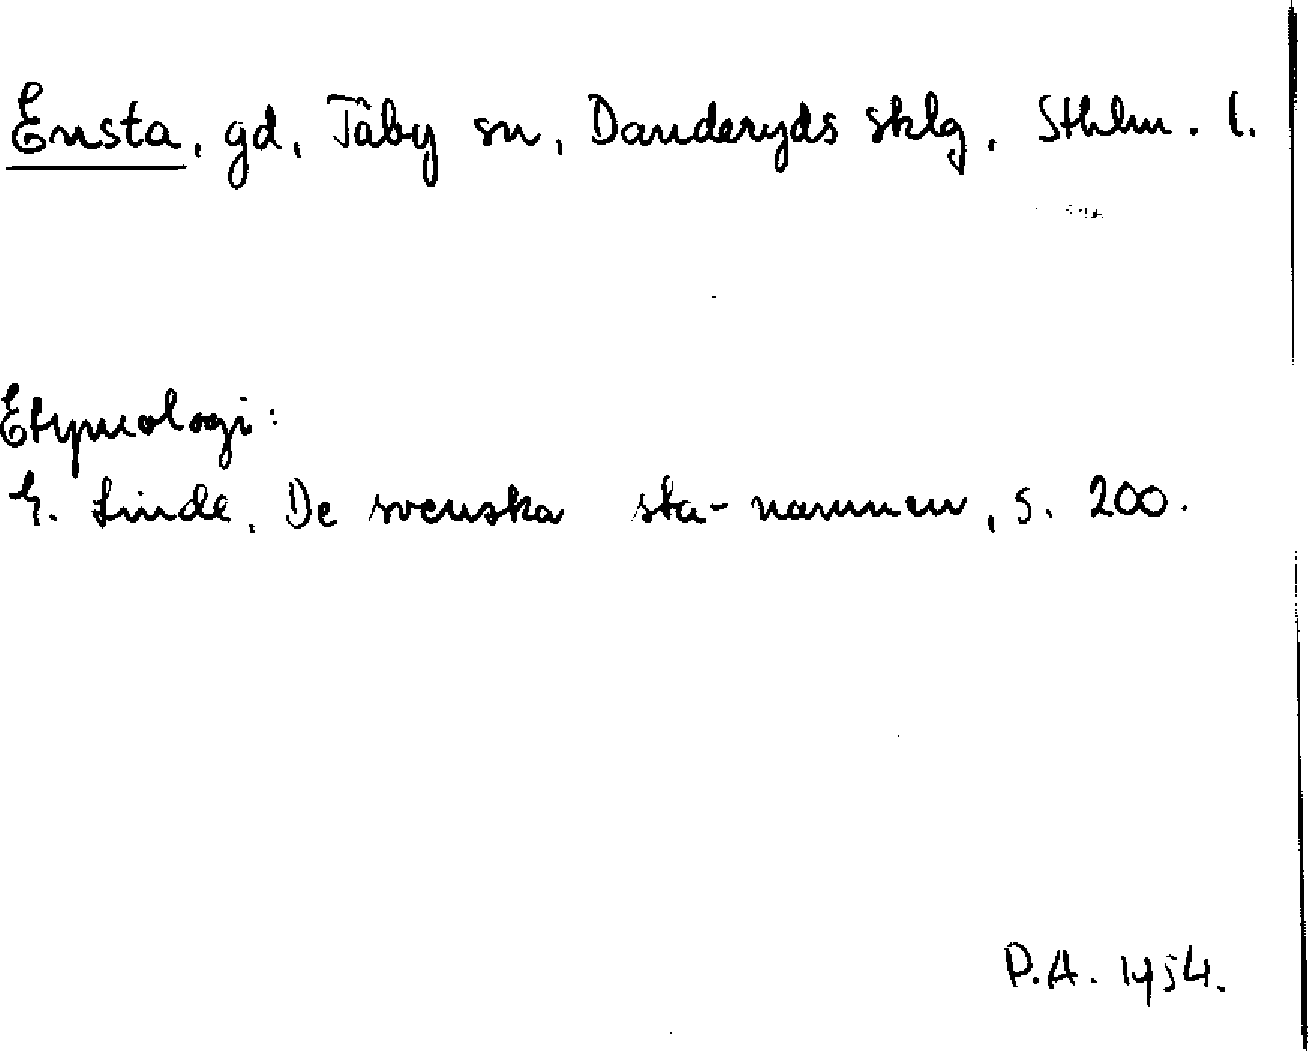 Ensta, gd, Täby sn, Danderyds sklg. Sthlm. l.
Etymologi:
G. Linde, De svenska sta-namnen, s. 200.
P.A. 1954.